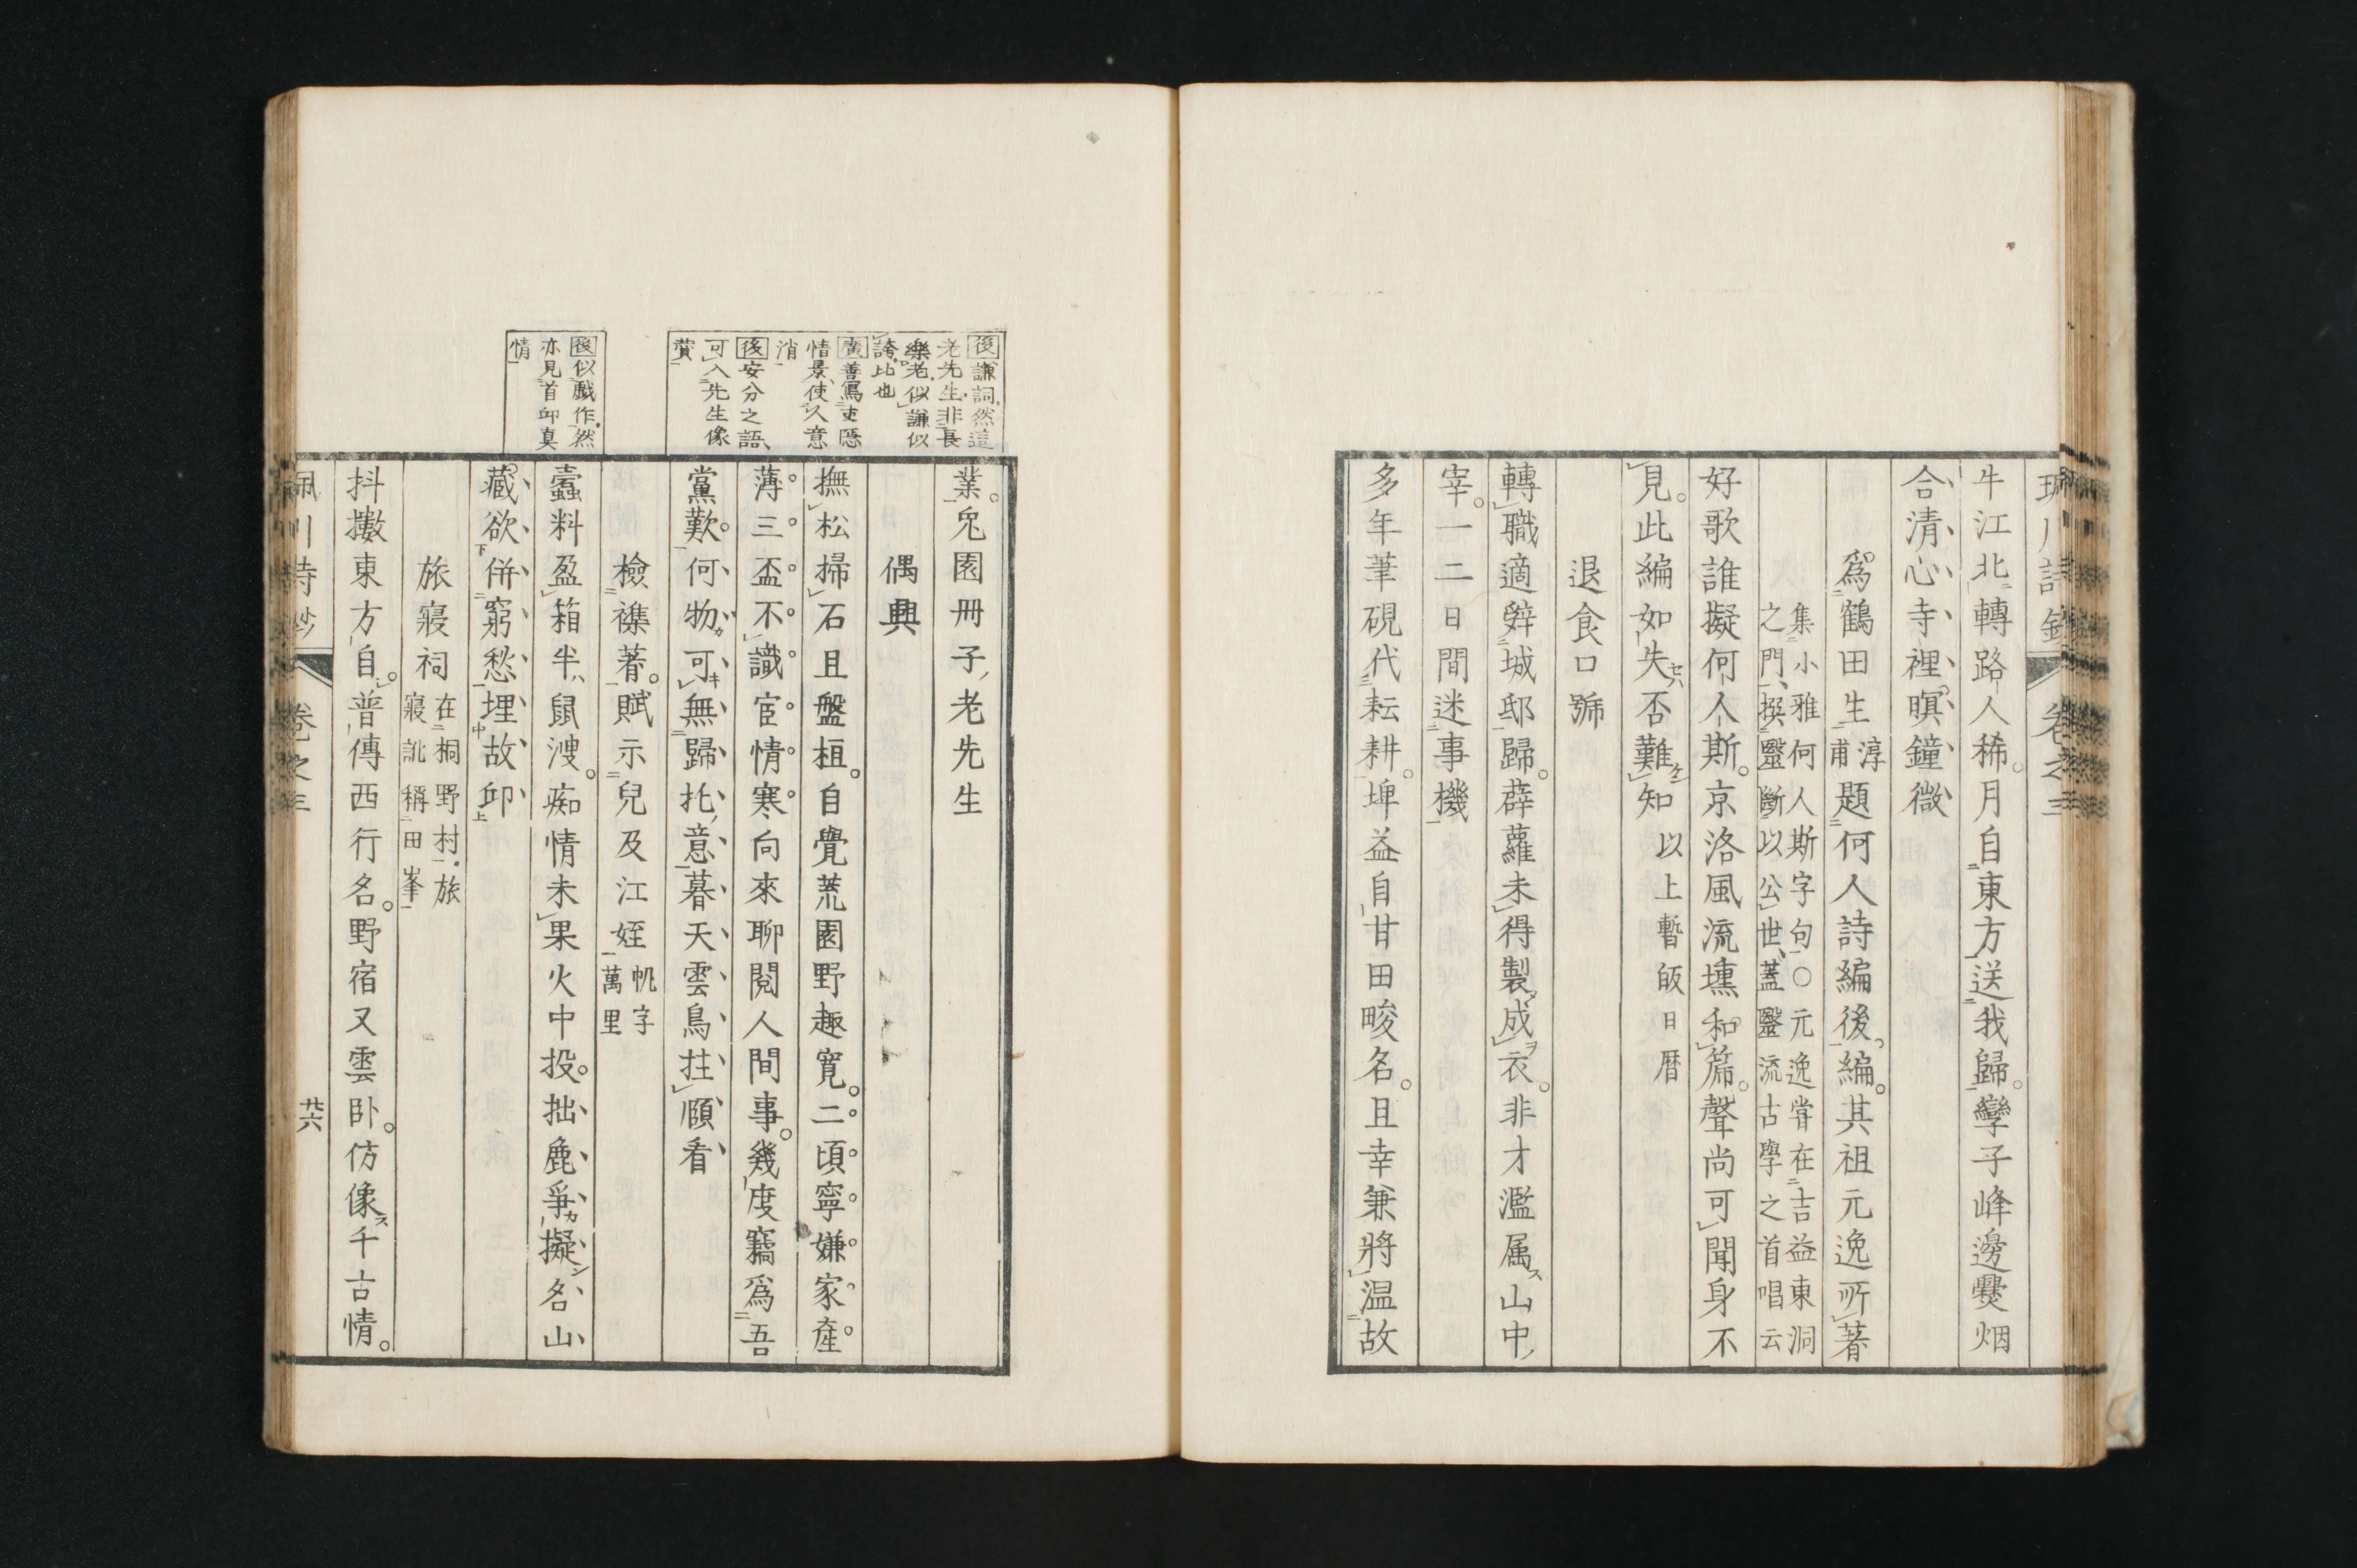 牛江北轉路人稀。月自東方送我歸。孿子峰邊爨烟
合清心寺裡暝鐘微
爲鶴田生淳甫題何人詩編後。編。其祖元逸所著
集小雅何人斯字句〇元逸甞在吉益東洞
之門撰醫斷以公世、蓋醫流古學之首唱云
好歌誰擬何人斯。京洛風流壎和篪。聲尚可聞身不
見。此編如失否難知
以上暫皈日暦
退食口號
轉職適辤城邸歸。薜蘿未得製成衣。非才濫属山中
宰。一二日間迷事機
多年筆硯代耘耕。埤益自甘田畯名。且幸兼將温故
後謙詞。然這
老先生非長
樂老。似謙似
誇比也
廣善寫吏隱
情景、使人意
消
後安分之語、
可入先生像
賛
後似戱作。然
亦見首邱真
情
業。兔園冊子老先生
偶興
撫松掃石且盤桓。自覺荒園野趣寛。二頃寧嫌家產
薄。三盃不識宦情寒。向來聊閲人間事。幾度竊爲吾
黨歎。何物可無歸托意暮天雲鳥拄頤看
檢襍著。賦示兒及江姪帆字
萬里
蠹料盈箱半鼠溲。痴情未果火中投。拙鹿爭擬名山
藏欲併窮愁埋故邱
旅寢祠在桐野村。旅
寢訛稱田峯
抖擻東方自普傳西行名。野宿又雲卧。仿像千古情。
卷之三
廿六